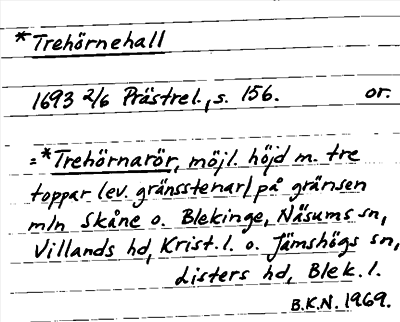 *Trehörnehall
1693 2/6 Prästrel., s. 156. or.
=*Trehörnarör, möjl. höjd m. tre
toppar (ev. gränsstenar) på gränsen
mln Skåne o. Blekinge, Näsums sn,
Villands hd, Krist. l. o. Jämshögs sn,
Listers hd, Blek. l.
B.K.N. 1969.